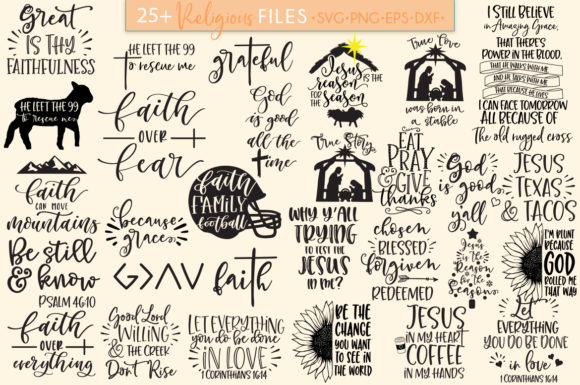 25+ Religious FILES • SVG•PNG•EPS•DXF •
Great
IS THY
FAITHFULNESS
HE LEFT THE 99
to rescue me
grateful
Jesus
IS THE
reason
FOR THE
season
True Love
was born in
a stable
I STILL BELIEVE
in Amazing Grace,
THAT THERE'S
POWER IN THE BLOOD,
THAT HE WALKS WITH ME
AND HE TALKS WITH ME
THAT BECAUSE HE LIVES
I CAN FACE TOMORROW
ALL BECAUSE OF
The old rugged cross
HE LEFT THE 99
to rescue me
faith
OVER
fear
God
is good
all the
time
True Story
EAT
PRAY
& GIVE
thanks
God
is good,
y'all
JESUS
TEXAS
& TACOS
faith
CAN MOVE
mountains
because
grace
faith
FAMILY
football
WHY Y'ALL
TRYING
TO TEST THE
JESUS
IN ME?
chosen
BLESSED
forgiven
REDEEMED
Jesus
is the
Reason
for the
Season
I'M BLUNT
BECAUSE
GOD
ROLLED ME
THAT WAY
Be still
& know
PSALM 46:10
G > Λ V
faith
faith
OVER
everything
Good Lord
WILLING
& THE CREEK
Don't Rise
LET EVERYTHING
you do be done
IN LOVE
1 CORINTHIANS 16:14
BE THE
CHANGE
YOU WANT
TO SEE IN
THE WORLD
JESUS
IN MY HEART
COFFEE
IN MY HANDS
Let
EVERYTHING
YOU DO BE DONE
in love
1 CORINTHIANS 16:14